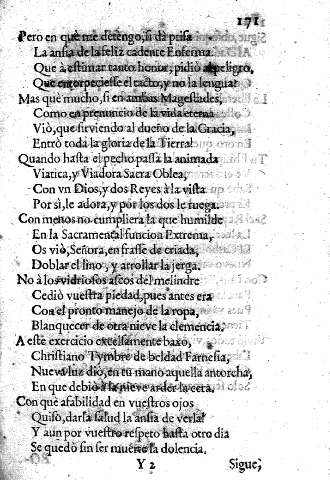 171
Pero en què me detengo, si dà prisa
La ansia de la feliz cadente Enferma
Que à estimar tanto honor, pidiò al peligro,
Que entorpeciesse el tacto, y no la lengua?
Mas què mucho, si en ambas Magestades,
Como en prenuncio de la vida eterna
Viò, que sirviendo al dueño de la Gracia,
Entrò toda la gloria de la Tierra!
Quando hasta el pecho passa la animada
Viatica, y Viadora Sacra Oblea,
Con vn Dios, y dos Reyes à la vista
Por sì, le adora, y por los dos le ruega.
Con menos no cumpliera la que humilde
En la Sacramental funcion Extrema,
Os viò, Señora, en frasse de criada,
Doblar el lino, y arrollar la jerga.
No à los vidriosos ascos del melindre
Cediò vuestra piedad, pues antes era
Con el pronto manejo de la ropa,
Blanquecer de otra nieve la clemencia.
A este exercicio excelsamente baxo,
Christiano Tymbre de beldad Farnesia,
Nueva luz dio, en tu mano aquella antorcha,
En que debiò à la nieve arder la cera.
Con què afabilidad en vuestros ojos
Quiso, darla salud la ansia de verla!
Y aun por vuestro respeto hasta otro dia
Se quedò sin ser muerte la dolencia.
Y 2 Sigue,